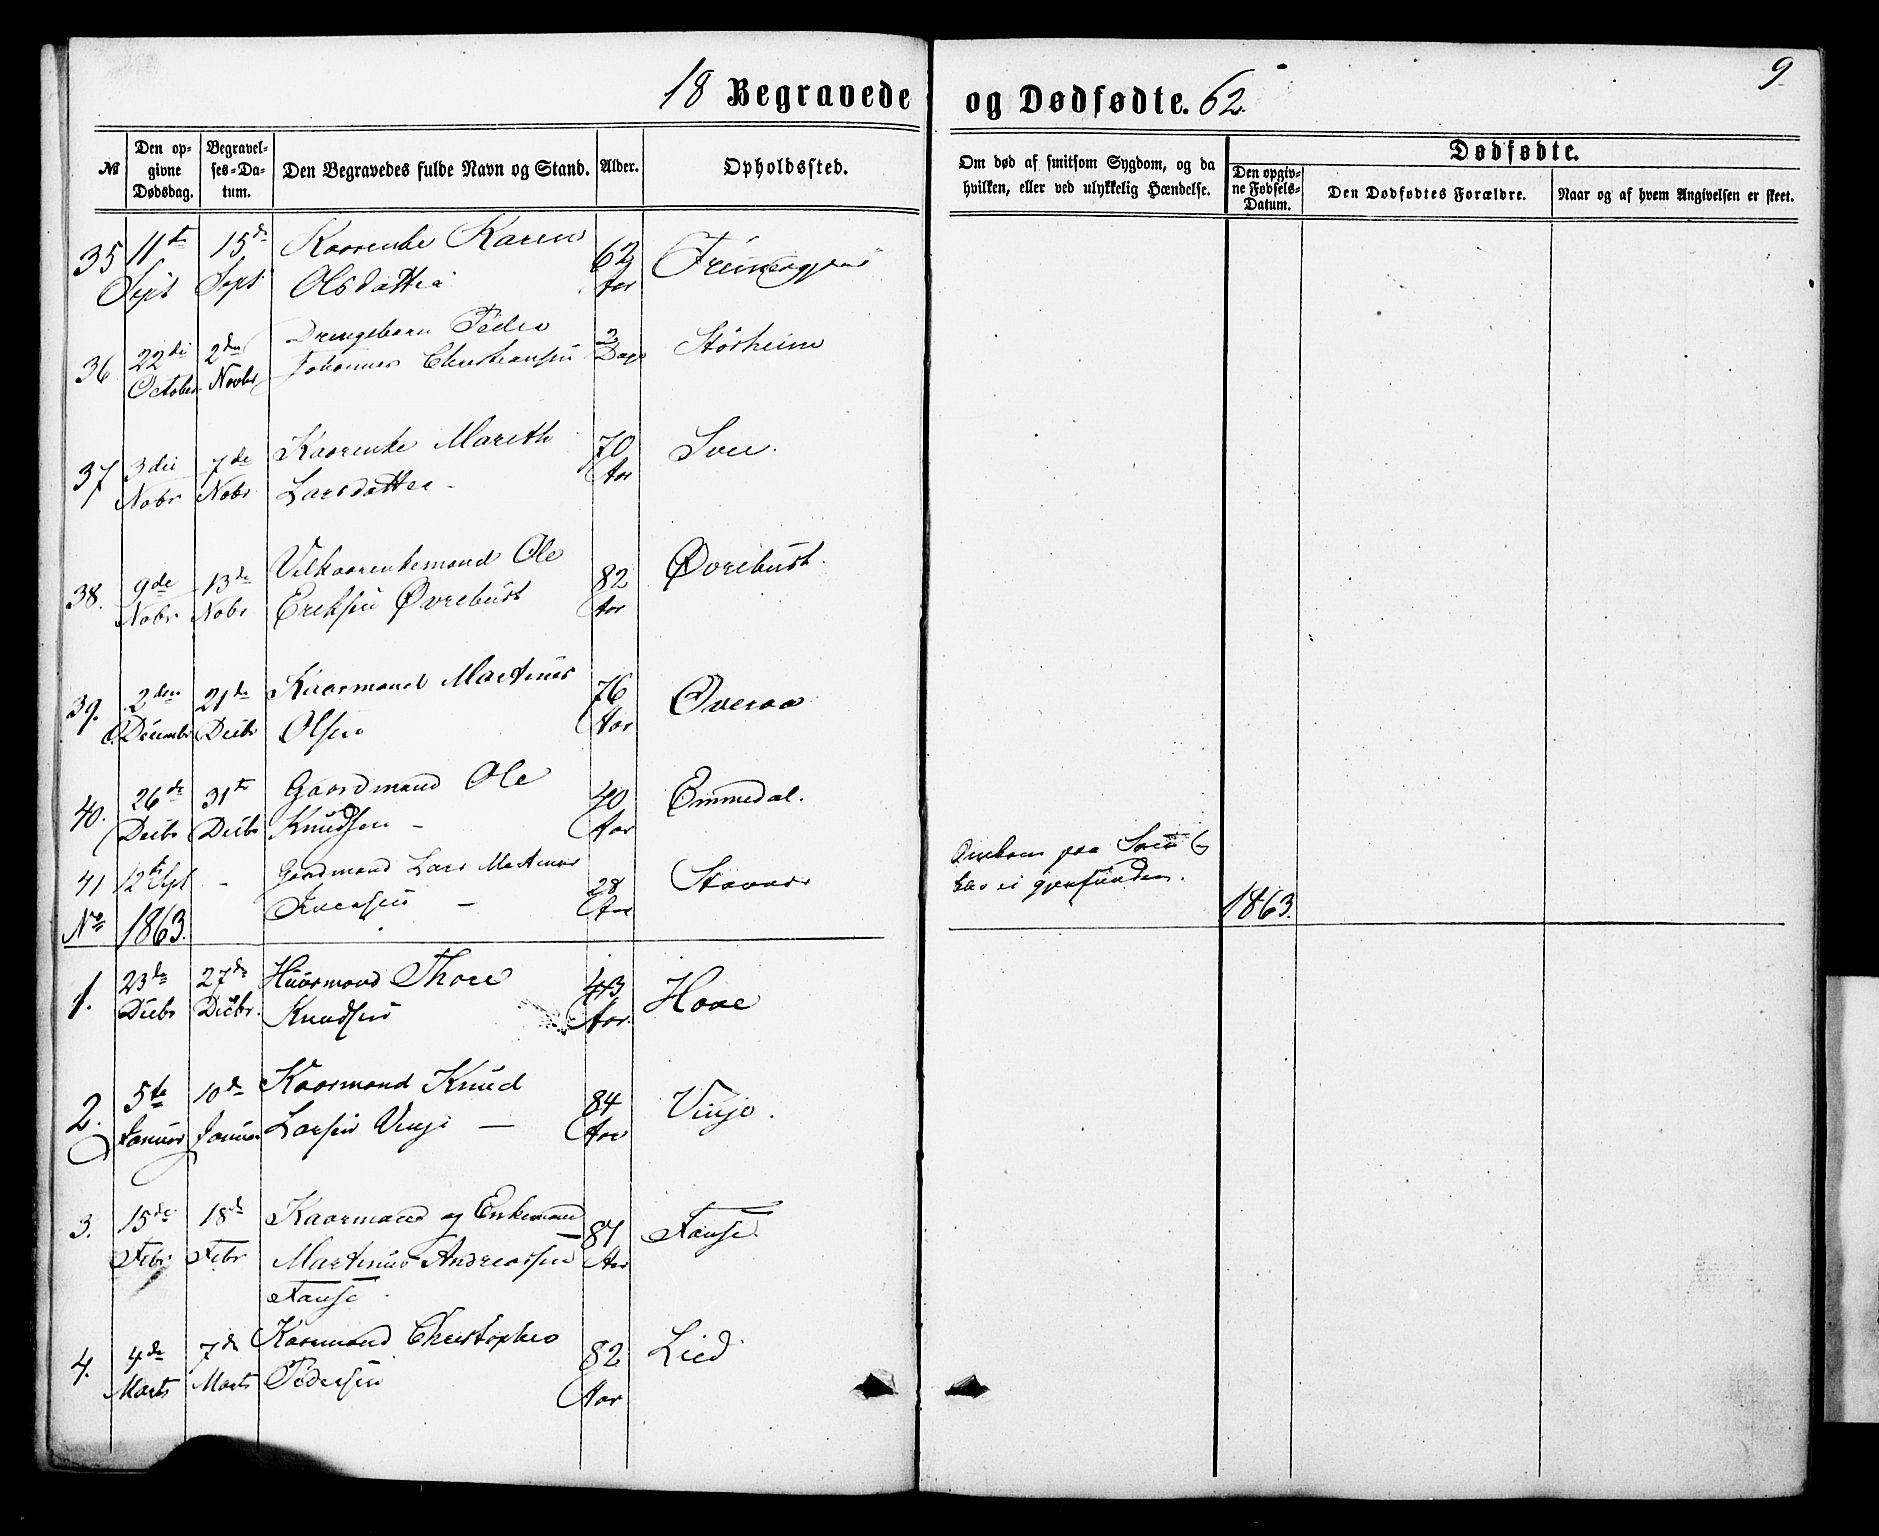 18 Begravede og Dødfødte. 62.
9
№
Den opgivne Dødsdag.
Begravelses-Datum.
Den Begravedes fulde Navn og Stand.
Alder.
Opholdssted.
Om død af smitsom Sygdom, og da hvilken, eller ved ulykkelig Hændelse.
Dødfødte.
Den opgivne Fødsels-Datum.
Den Dødfødtes Forældre.
Naar og af hvem Angivelsen er skeet.
35 11te 15de Kaarenke Karen 62
Sept Sept Olsdatter Aar
36 22de 2den Drengebarn Peder 2 Storheim
October Novbr Johannes Christiansen Dage
37 3die 7de Kaarenke Mareth 70 Svee.
Nobr Nobr Larsdatter - Aar
38. 9de 13de Vilkaarenkemand Ole 82 Øvrebust.
Nobr Nobr Eriksen Øvrebust Aar
39. 2den 21de Kaarmand Martinus 76 Overaa
Decembr Decbr Olsen Aar
40. 26de 31te Gaardmand Ole 40 Emmedal.
Decbr Decbr Knudsen - Aar
41 12te Sept - Gaardmand Lars Martinus 28 Stavnes Omkom paa Søen
Iversen - Aar ei gjenfunden.
No 1863. 1863.
1. 23de 27de Huusmand Thore 43 Hove
Decbr Decbr. Knudsen Aar.
2. 5te 10de Kaarmand Knud 84 Vinje.
Januar Januar Larsen Vinje - Aar
3. 15de 18de Kaarmand og Enkemand 81 Tause.
Febr Febr Martinus Andreassen Aar
Tause.
4. 4de 7de Kaarmand Christopher 82 Lied
Marts Marts Pedersen Aar